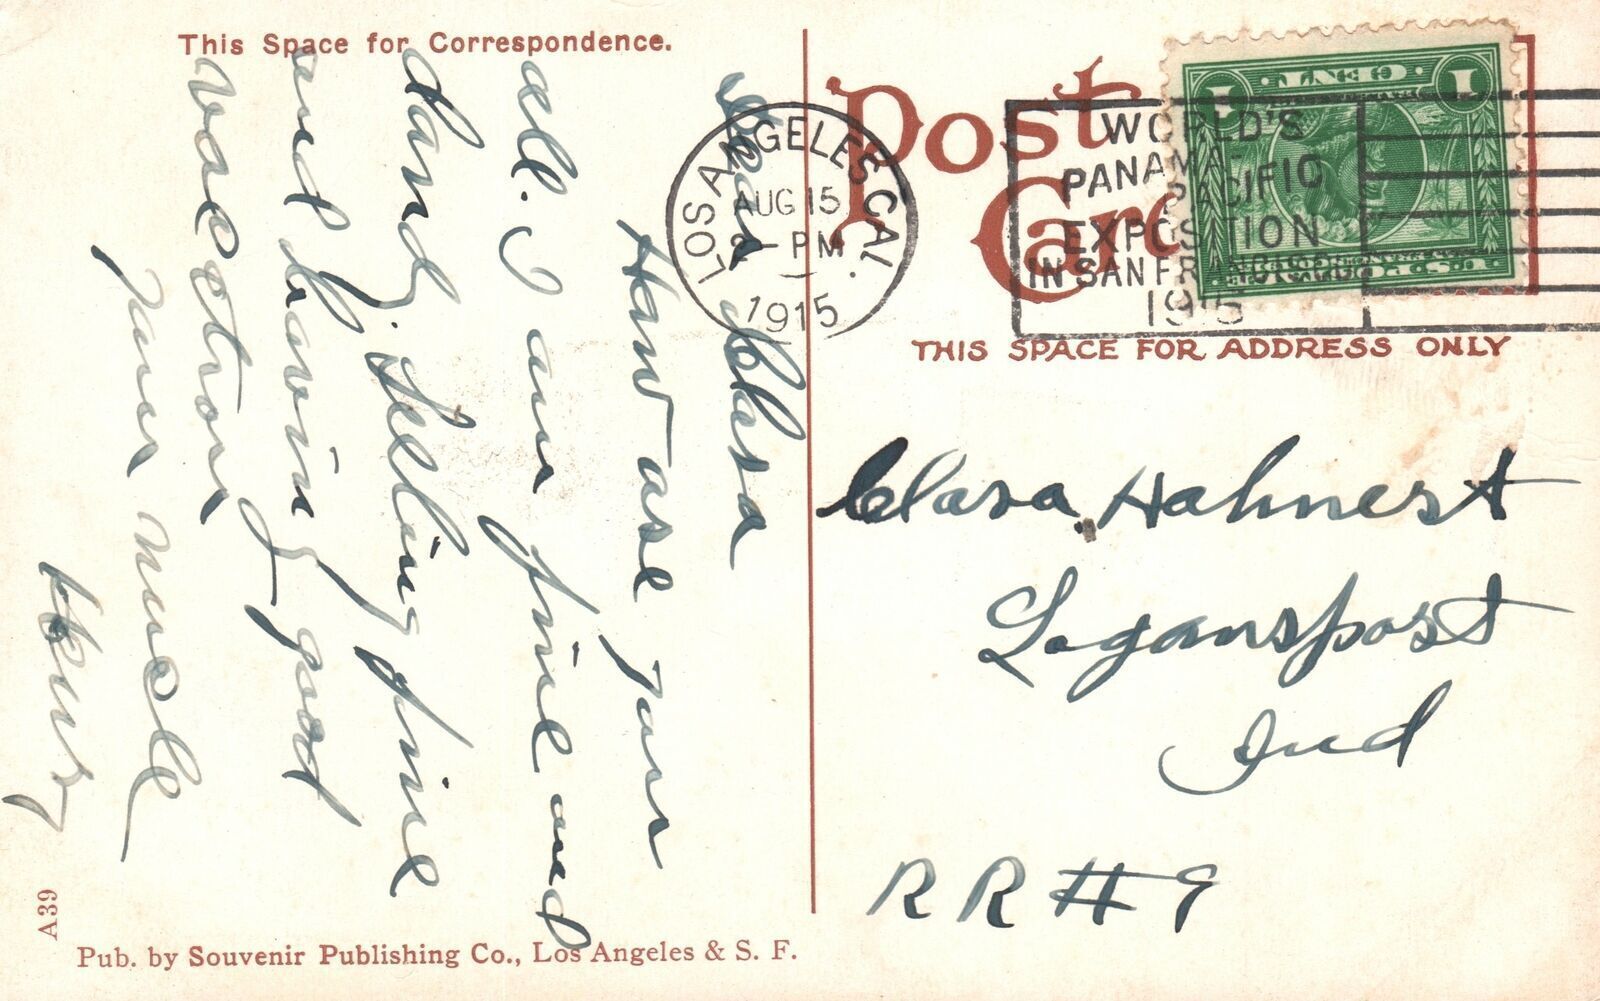 This Space for Correspondence.
Post Card
THIS SPACE FOR ADDRESS ONLY
1 CENT 1
U.S. POSTAGE
LOS ANGELES CAL.
AUG 15
2 - PM
1915
WORLD'S
PANAMA-
PACIFIC
EXPOSITION
IN SAN FRANCISCO
1915
Dear Clara
How are your
all. I am fine and
dandy. feeling fine
and having good
vacation
your uncle
Henry
Clara Hahnert
Logansport
Ind
RR # 9
A39
Pub. by Souvenir Publishing Co., Los Angeles & S. F.